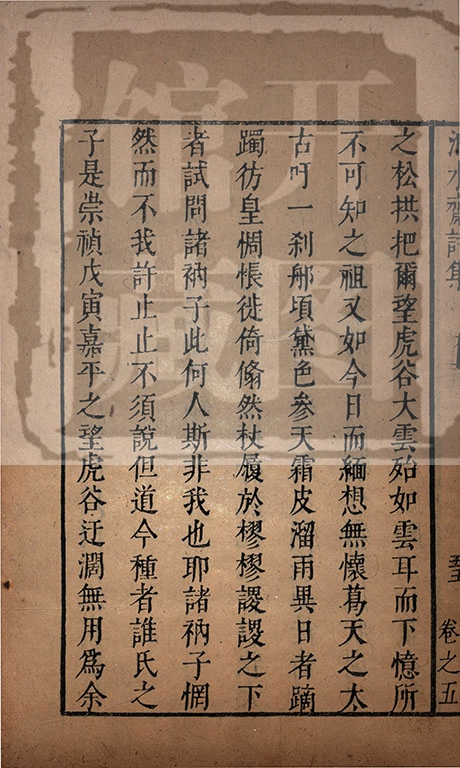 之松拱把爾望虎谷大雲殆如雲耳而下憶所
不可知之祖又如今日而緬想無懷葛天之太
古吁一刹那頃黛色參天霜皮溜雨異日者躑
躅彷皇惆悵徙倚翛然杖履於樛樛謖謖之下
者試問諸衲子此何人斯非我也耶諸衲子惘
然而不我許止止不須說但道今種者誰氏之
子是崇禎戊寅嘉平之望虎谷迂濶無用爲余
卷之五